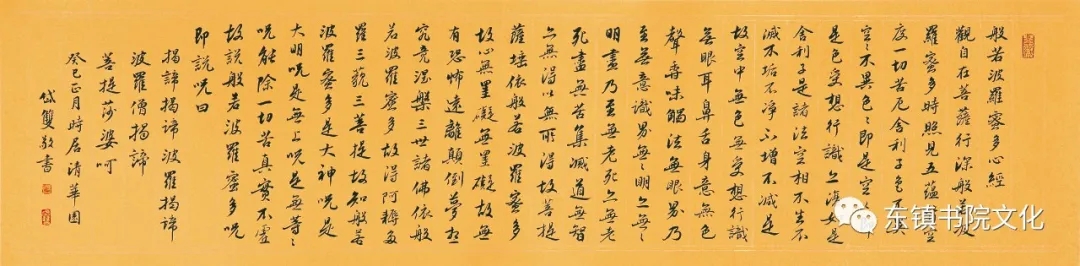 般若波羅蜜多心經
觀自在菩薩行深般若波
羅蜜多時照見五蘊皆空
度一切苦厄舍利子色不異
空〻不異色〻即是空〻即
是色受想行識亦復如是
舍利子是諸法空相不生不
滅不垢不淨不增不減是
故空中無色無受想行識
無眼耳鼻舌身意無色
聲香味觸法無眼界乃
至無意識界無〻明亦無〻
明盡乃至無老死亦無老
死盡無苦集滅道無智
亦無得以無所得故菩提
薩埵依般若波羅蜜多
故心無罣礙無罣礙故無
有恐怖遠離顛倒夢想
究竟涅槃三世諸佛依般
若波羅蜜多故得阿耨多
羅三藐三菩提故知般若
波羅蜜多是大神呪是
大明呪是無上呪是無等〻
呪能除一切苦真實不虛
故說般若波羅蜜多呪
即說呪曰
揭諦揭諦波羅揭諦
波羅僧揭諦
菩提莎婆呵
癸巳正月時居清華園
岱雙敬書
东镇书院文化